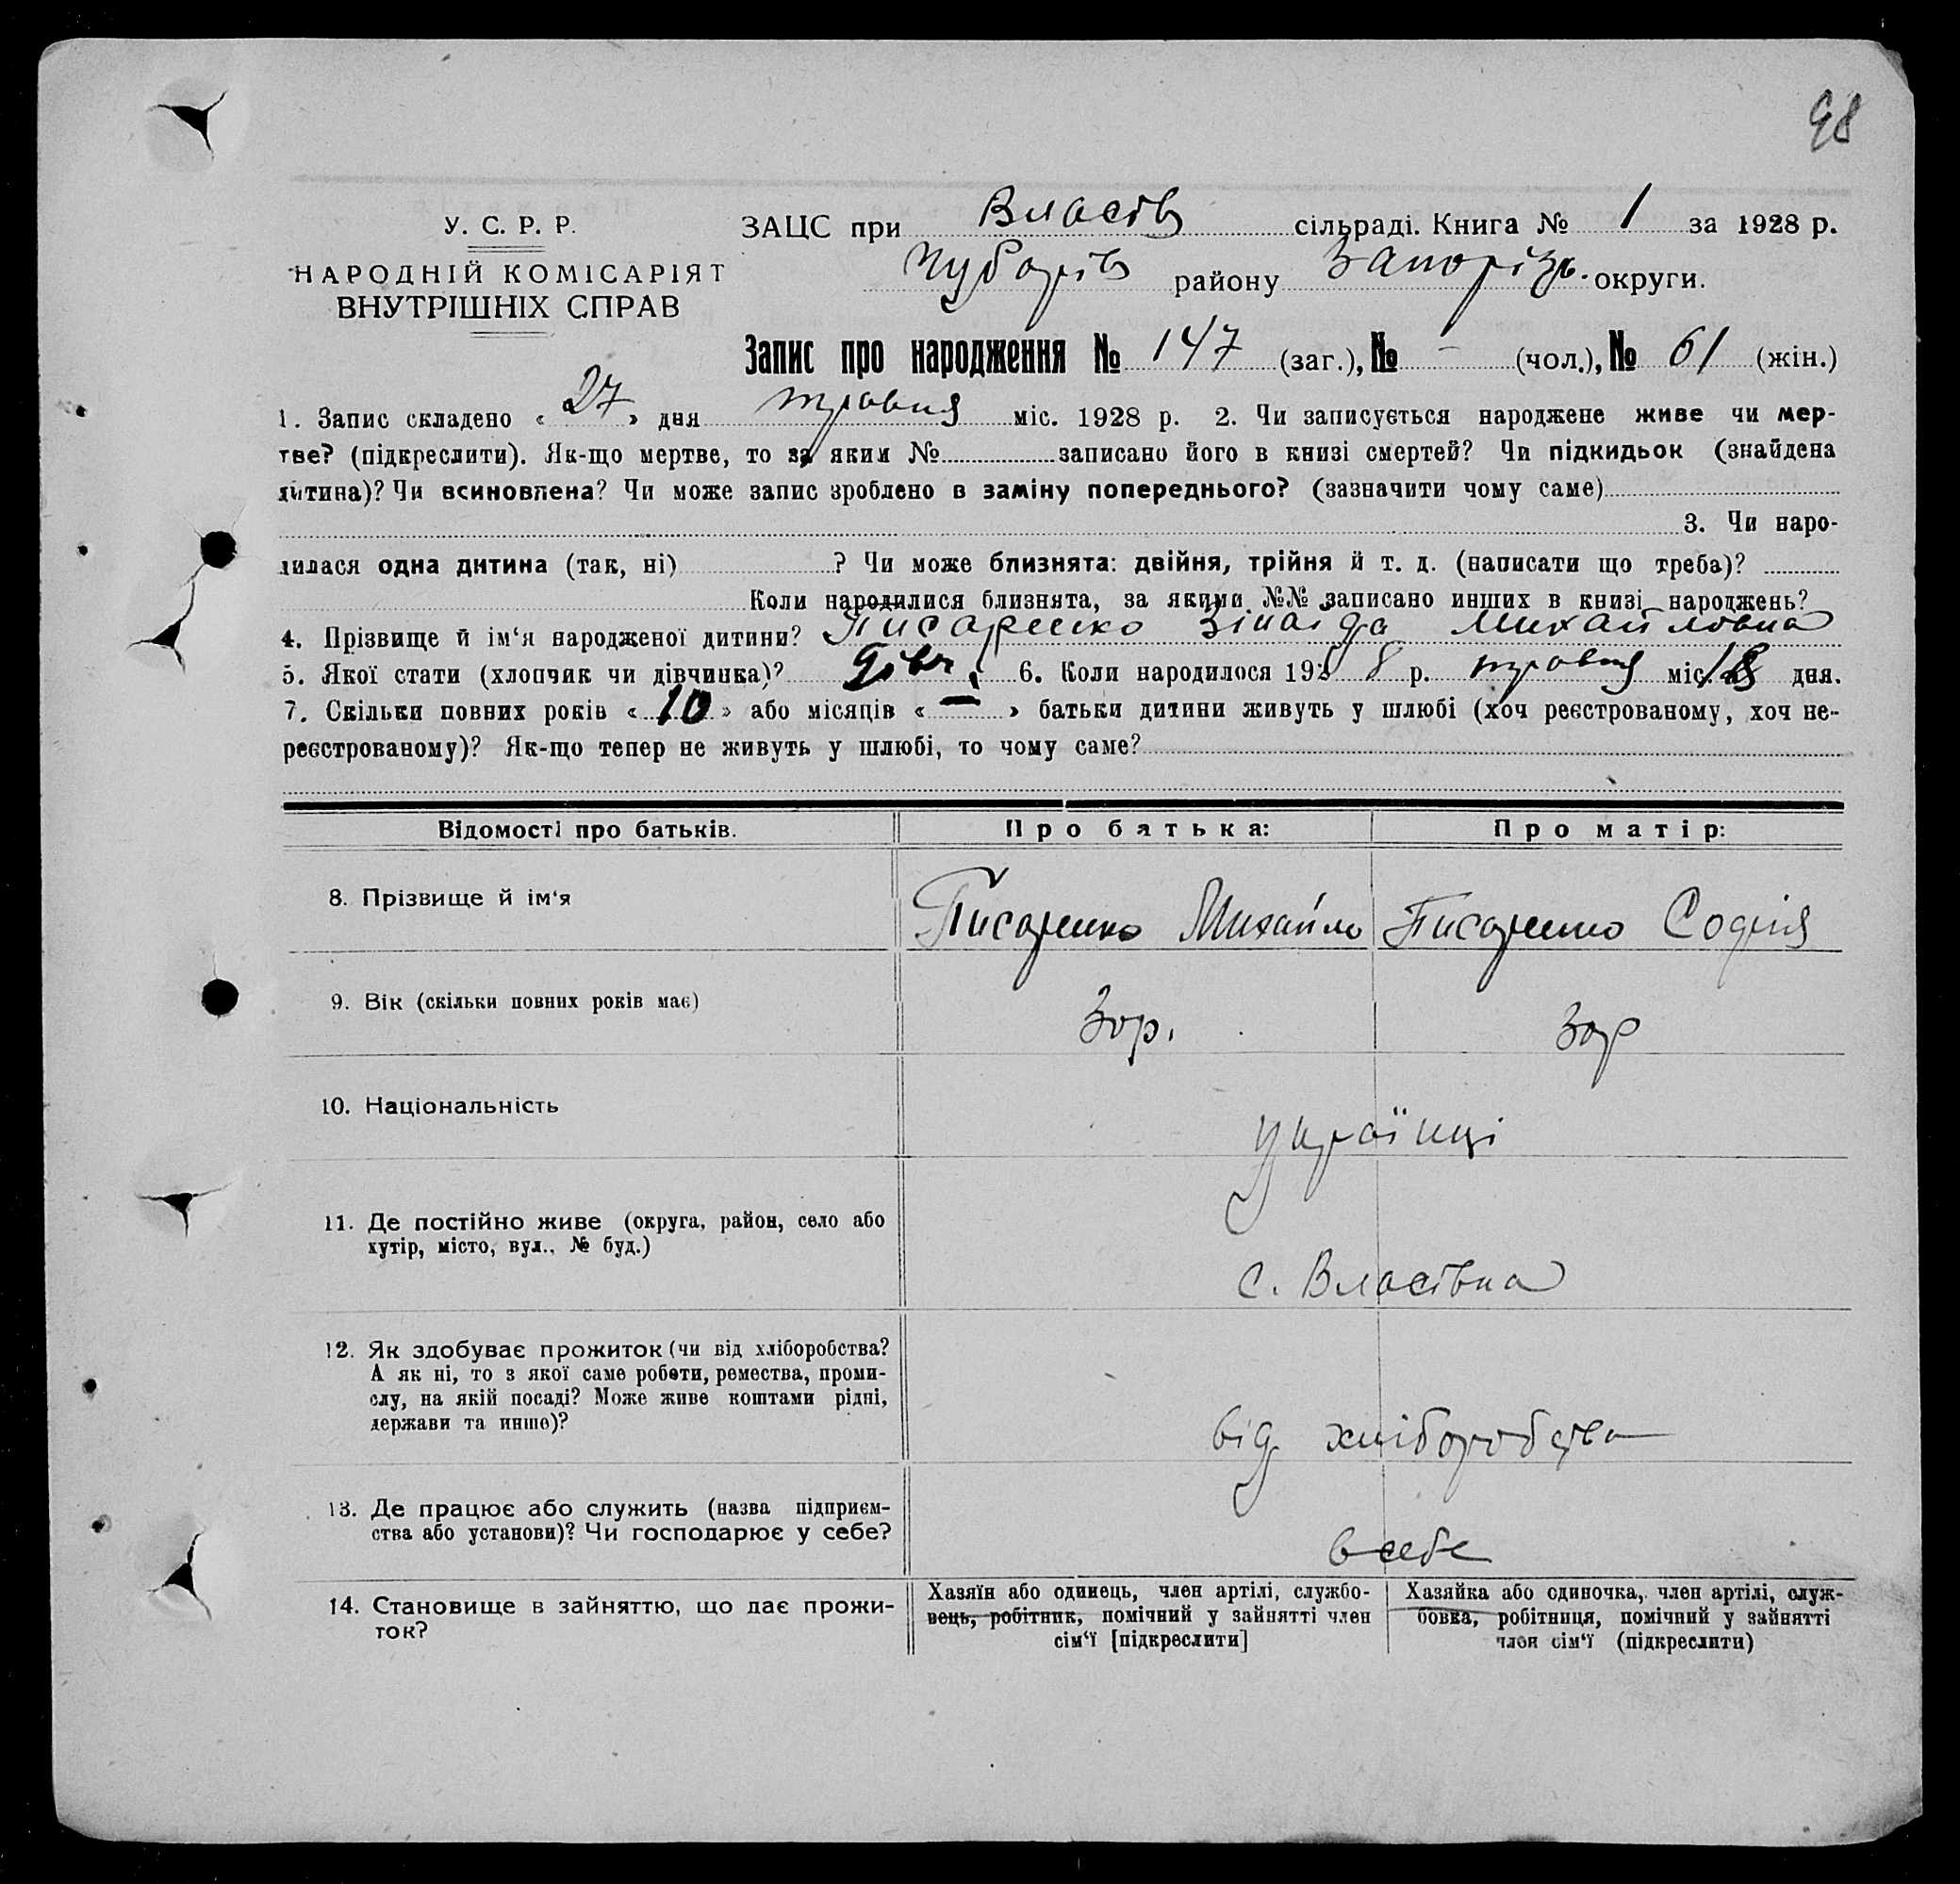 98
У. С. Р. Р.
НАРОДНІЙ КОМІСАРІЯТ
ВНУТРІШНІХ СПРАВ
ЗАЦС при Власів сільраді. Книга № 1 за 1928 р.
Чубарів району Запорізь. округи.
Запис про народження № 147 (заг.), № - (чол.), № 61 (жін.)
1. Запис складено « 27 » дня травня міс. 1928 р. 2. Чи записується народжене живе чи мер-
тве? (підкреслити). Як-що мертве, то за яким № записано його в книзі смертей? Чи підкидьок (знайдена
дитина)? Чи всиновлена? Чи може запис зроблено в заміну попереднього? (зазначити чому саме)
3. Чи наро-
дилася одна дитина (так, ні) ? Чи може близнята: двійня, трійня й т. д. (написати що треба)?
Коли народилися близнята, за якими №№ записано инших в книзі народжень?
4. Прізвище й ім‘я народженої дитини? Писаренко Зінаїда Михайловна
5. Якої стати (хлопчик чи дівчинка)? дівч. 6. Коли народилося 1928 р. травня міс. 18 дня.
7. Скільки повних років « 10 » або місяців « — » батьки дитини живуть у шлюбі (хоч реєстрованому, хоч не-
реєстрованому)? Як-що тепер не живуть у шлюбі, то чому саме?
Відомості про батьків. Про батька: Про матір:
8. Прізвище й ім‘я Писаренко Михайло Писаренко Софія
9. Вік (скільки повних років має) 30р. 30р
10. Національність Українці
11. Де постійно живе (округа, район, село або
хутір, місто, вул., № буд.)
с. Власівка
12. Як здобуває прожиток (чи від хліборобства?
А як ні, то з якої саме роботи, ремества, проми-
слу, на якій посаді? Може живе коштами рідні,
держави та инше)?
від хліборобства
13. Де працює або служить (назва підприєм-
ства або установи)? Чи господарює у себе?
в себе
14. Становище в зайняттю, що дає прожи-
ток?
Хазяїн або одинець, член артілі, службо-
вець, робітник, помічний у зайнятті член
сім‘ї [підкреслити]
Хазяйка або одиночка, член артілі, служ-
бовка, робітниця, помічний у зайнятті
член сім‘ї (підкреслити)